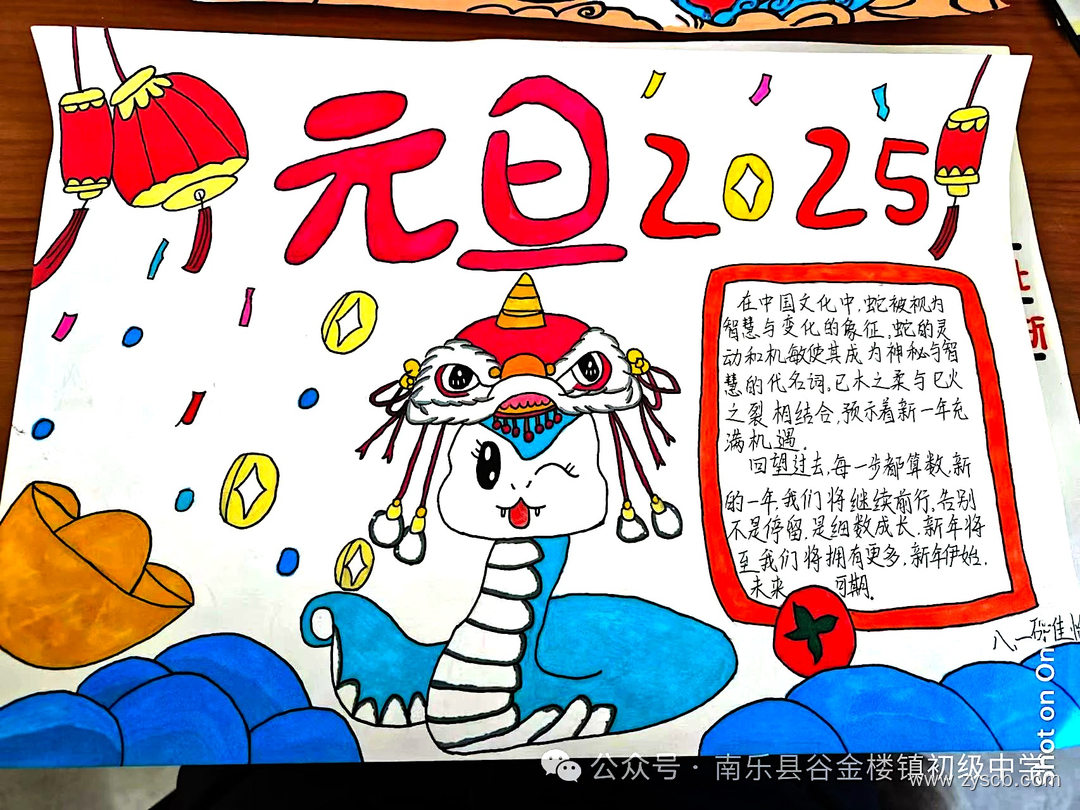 元旦2025
在中国文化中,蛇被视为
智慧与变化的象征,蛇的灵
动和机敏使其成为神秘与智
慧的代名词,已木之柔与巳火
之裂相结合,预示着新一年充
满机遇.
回望过去,每一步都算数,新
的一年,我们将继续前行,告别
不是停留,是细数成长.新年将
至我们将拥有更多.新年伊始.
未来 可期.
八.一
Shot on On
公众号·南乐县谷金楼镇初级中学
www.zyscb.com